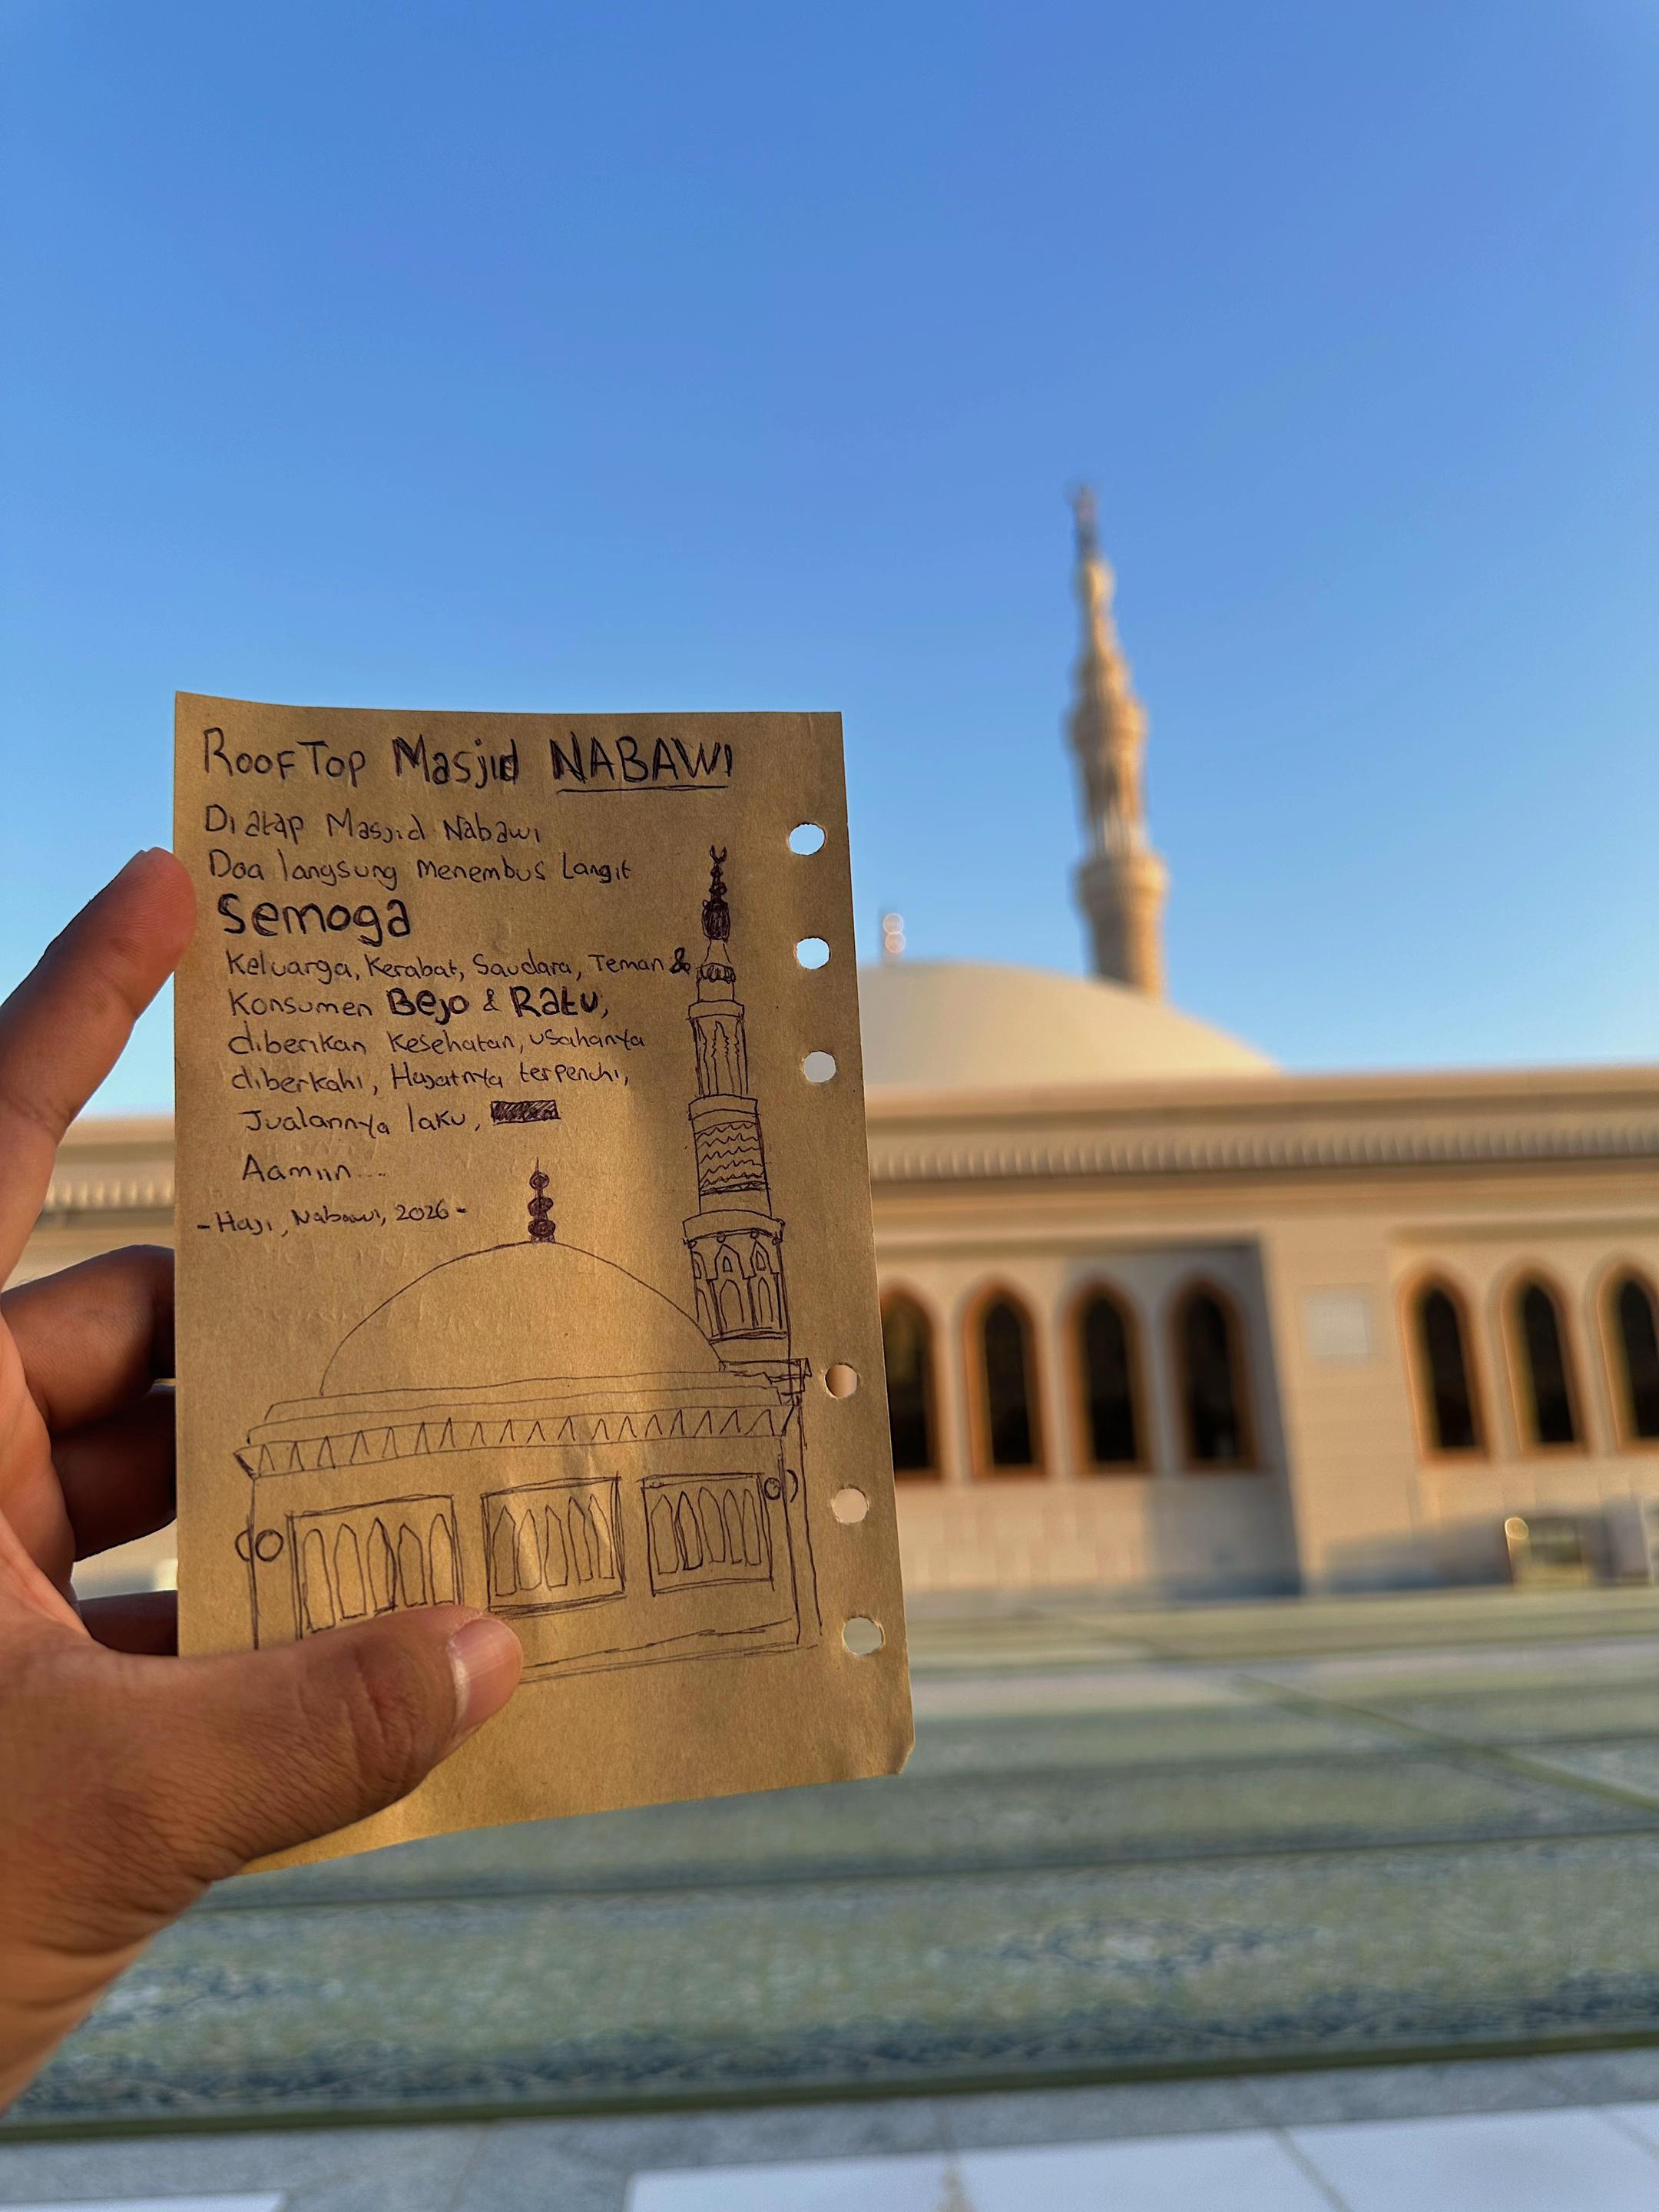 RoofTop Masjid NABAWI
Di atap Masjid Nabawi
Doa langsung menembus langit
Semoga
Keluarga, Kerabat, Saudara, Teman &
Konsumen Bejo & Ratu,
diberikan kesehatan, usahanya
diberkahi, Hajatnya terpenuhi,
Jualannya laku,
Aamiin...
- Haji, Nabawi, 2026 -